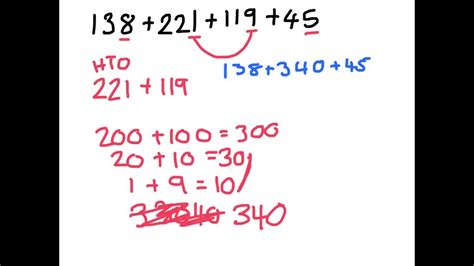 138+221+119+45
138+340+45
HTO
221+119
200+100=300
20+10=30
1+9=10
340